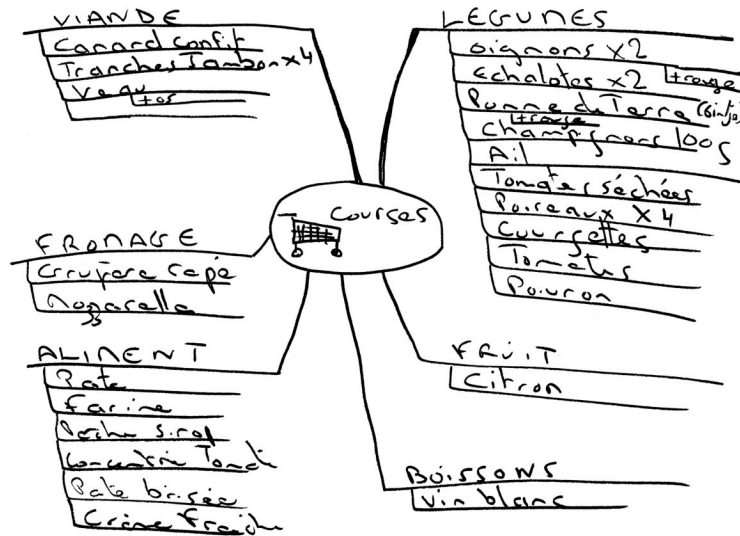 VIANDE
Canard confit
Tranches Jambon x4
Veau
+os
FROMAGE
Gruyère rapé
Mozzarella
ALIMENT
Pate
Farine
Pêche sirop
Concentrée Tomate
Pate brisée
Crème Fraiche
Courses
LEGUMES
oignons x2
echalotes x2
+rouge
Pomme de Terre (Bintje)
+rouge
Champignons 100g
Ail
Tomates séchées
Poireaux x4
Courgettes
Tomates
Poivron
FRUIT
Citron
BOISSONS
Vin blanc